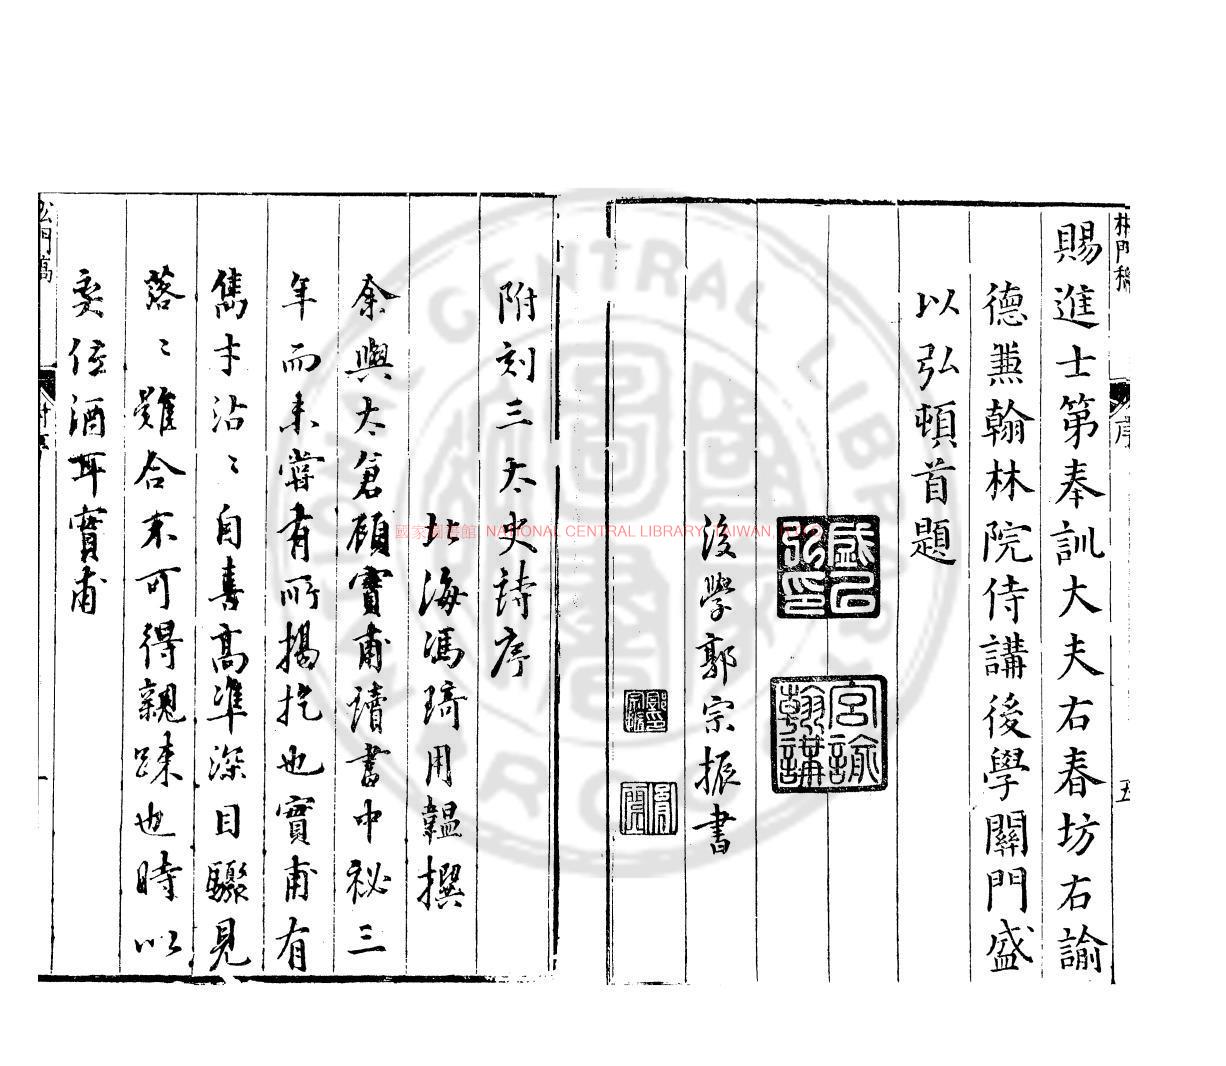 賜進士第奉訓大夫右春坊右諭
德兼翰林院侍講後學關門盛
以弘頓首題
後學郭宗振書
盛以弘印
宮諭翰講
序
五
附刻三太史詩序
北海馮琦用韞撰
余與太倉顧實甫讀書中祕三
年而未嘗有所揚扢也實甫有
雋才沾沾自喜高準深目驟見
落落難合末可得親踈也時以
使酒耳實甫
國家圖書館 NATIONAL CENTRAL LIBRARY, TAIWAN, R.O.C